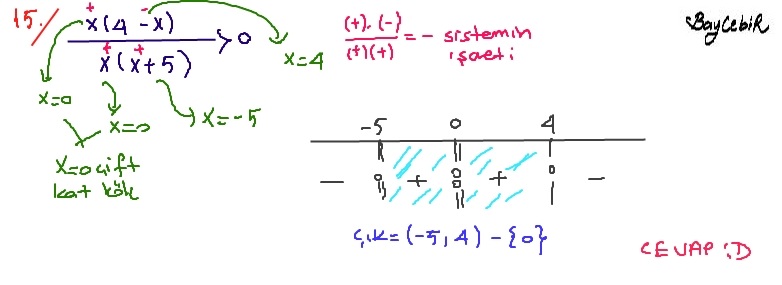 15./ x(4-x) / x(x+5) > 0
+ -
+ +
(+).(-) / (+)(+) = - sistemin işareti
BayCebiR
x=4
x=0
x=0
x=-5
x=0 çift
kat kök
-5 0 4
- + + -
Ç.K=(-5,4)-{0}
CEVAP:D